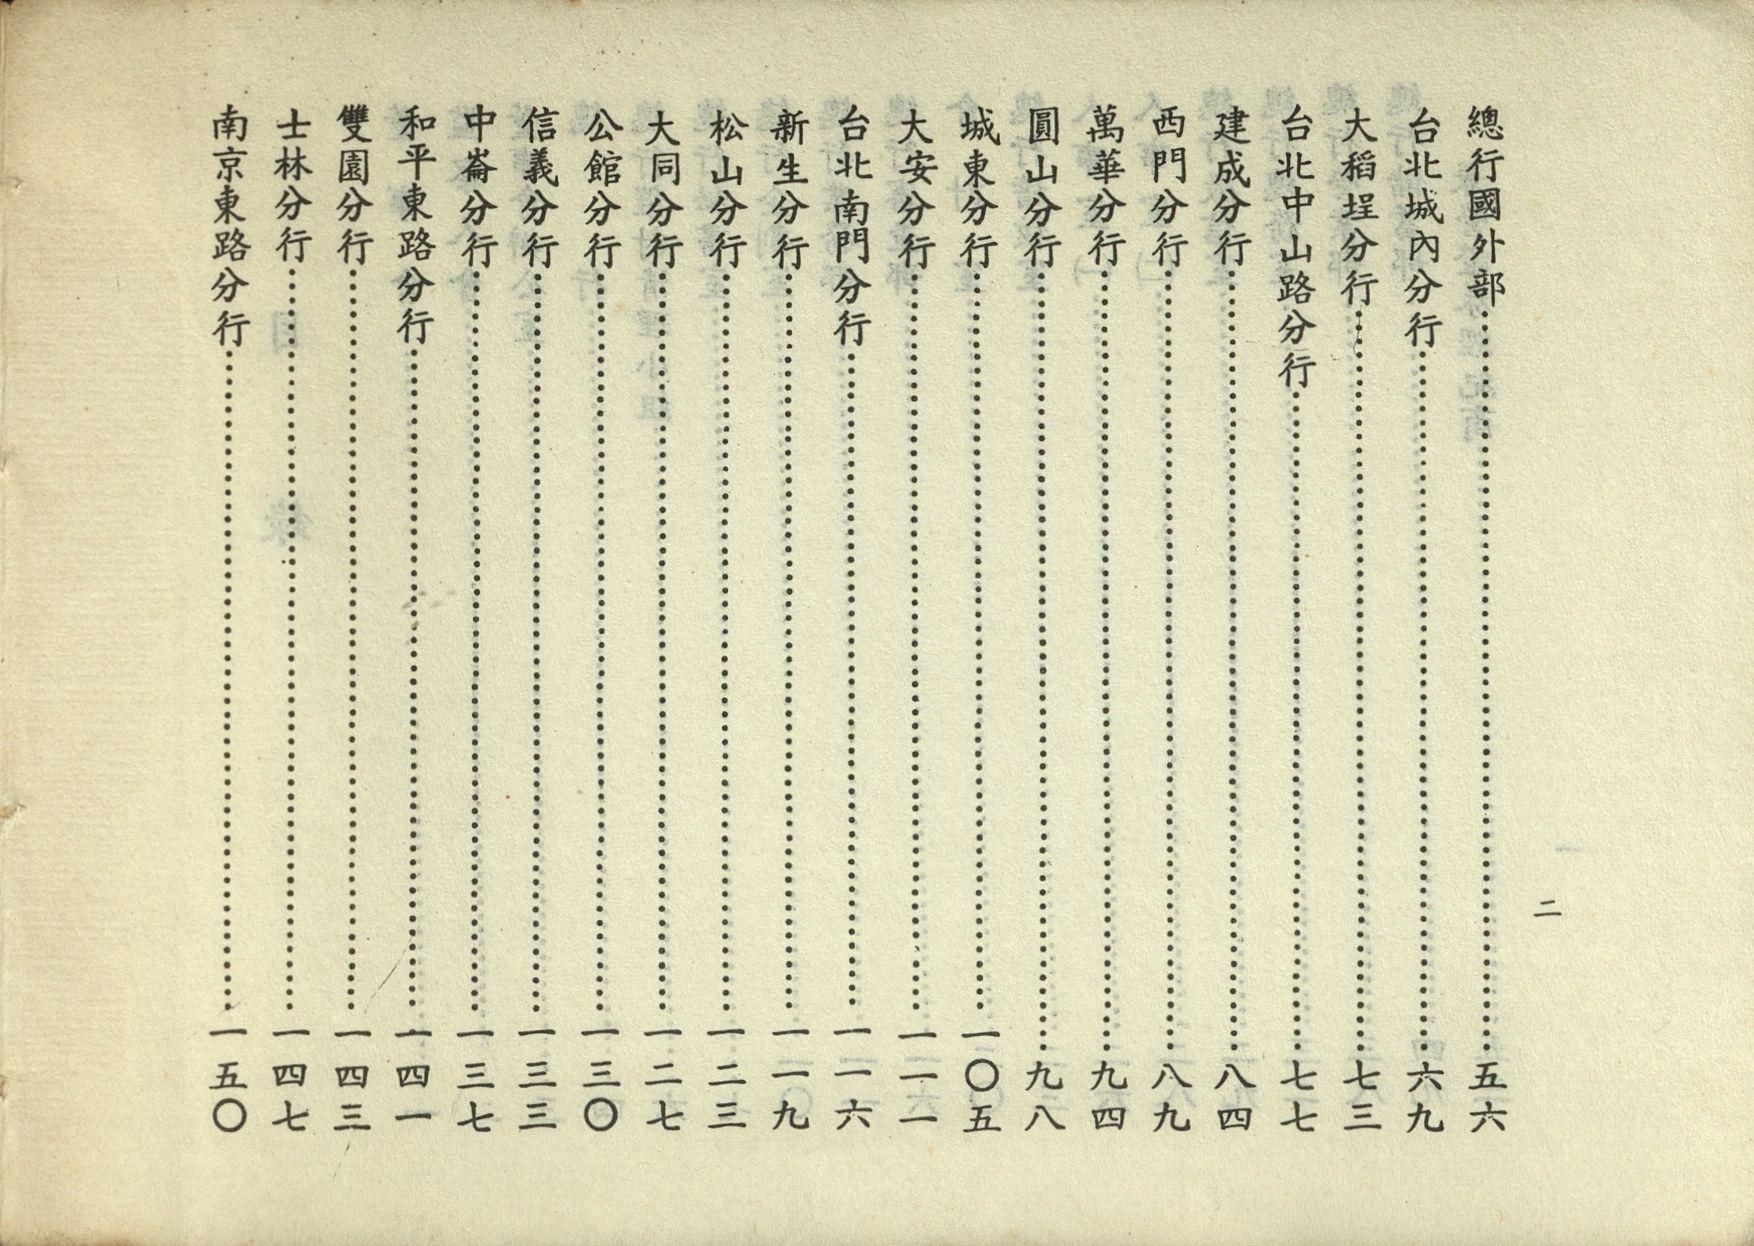 二
總行國外部……五六
台北城內分行……六九
大稻埕分行……七三
台北中山路分行……七七
建成分行……八四
西門分行……八九
萬華分行……九四
圓山分行……九八
城東分行……一〇五
大安分行……一一一
台北南門分行……一一六
新生分行……一一九
松山分行……一二三
大同分行……一二七
公館分行……一三〇
信義分行……一三三
中崙分行……一三七
和平東路分行……一四一
雙園分行……一四三
士林分行……一四七
南京東路分行……一五〇